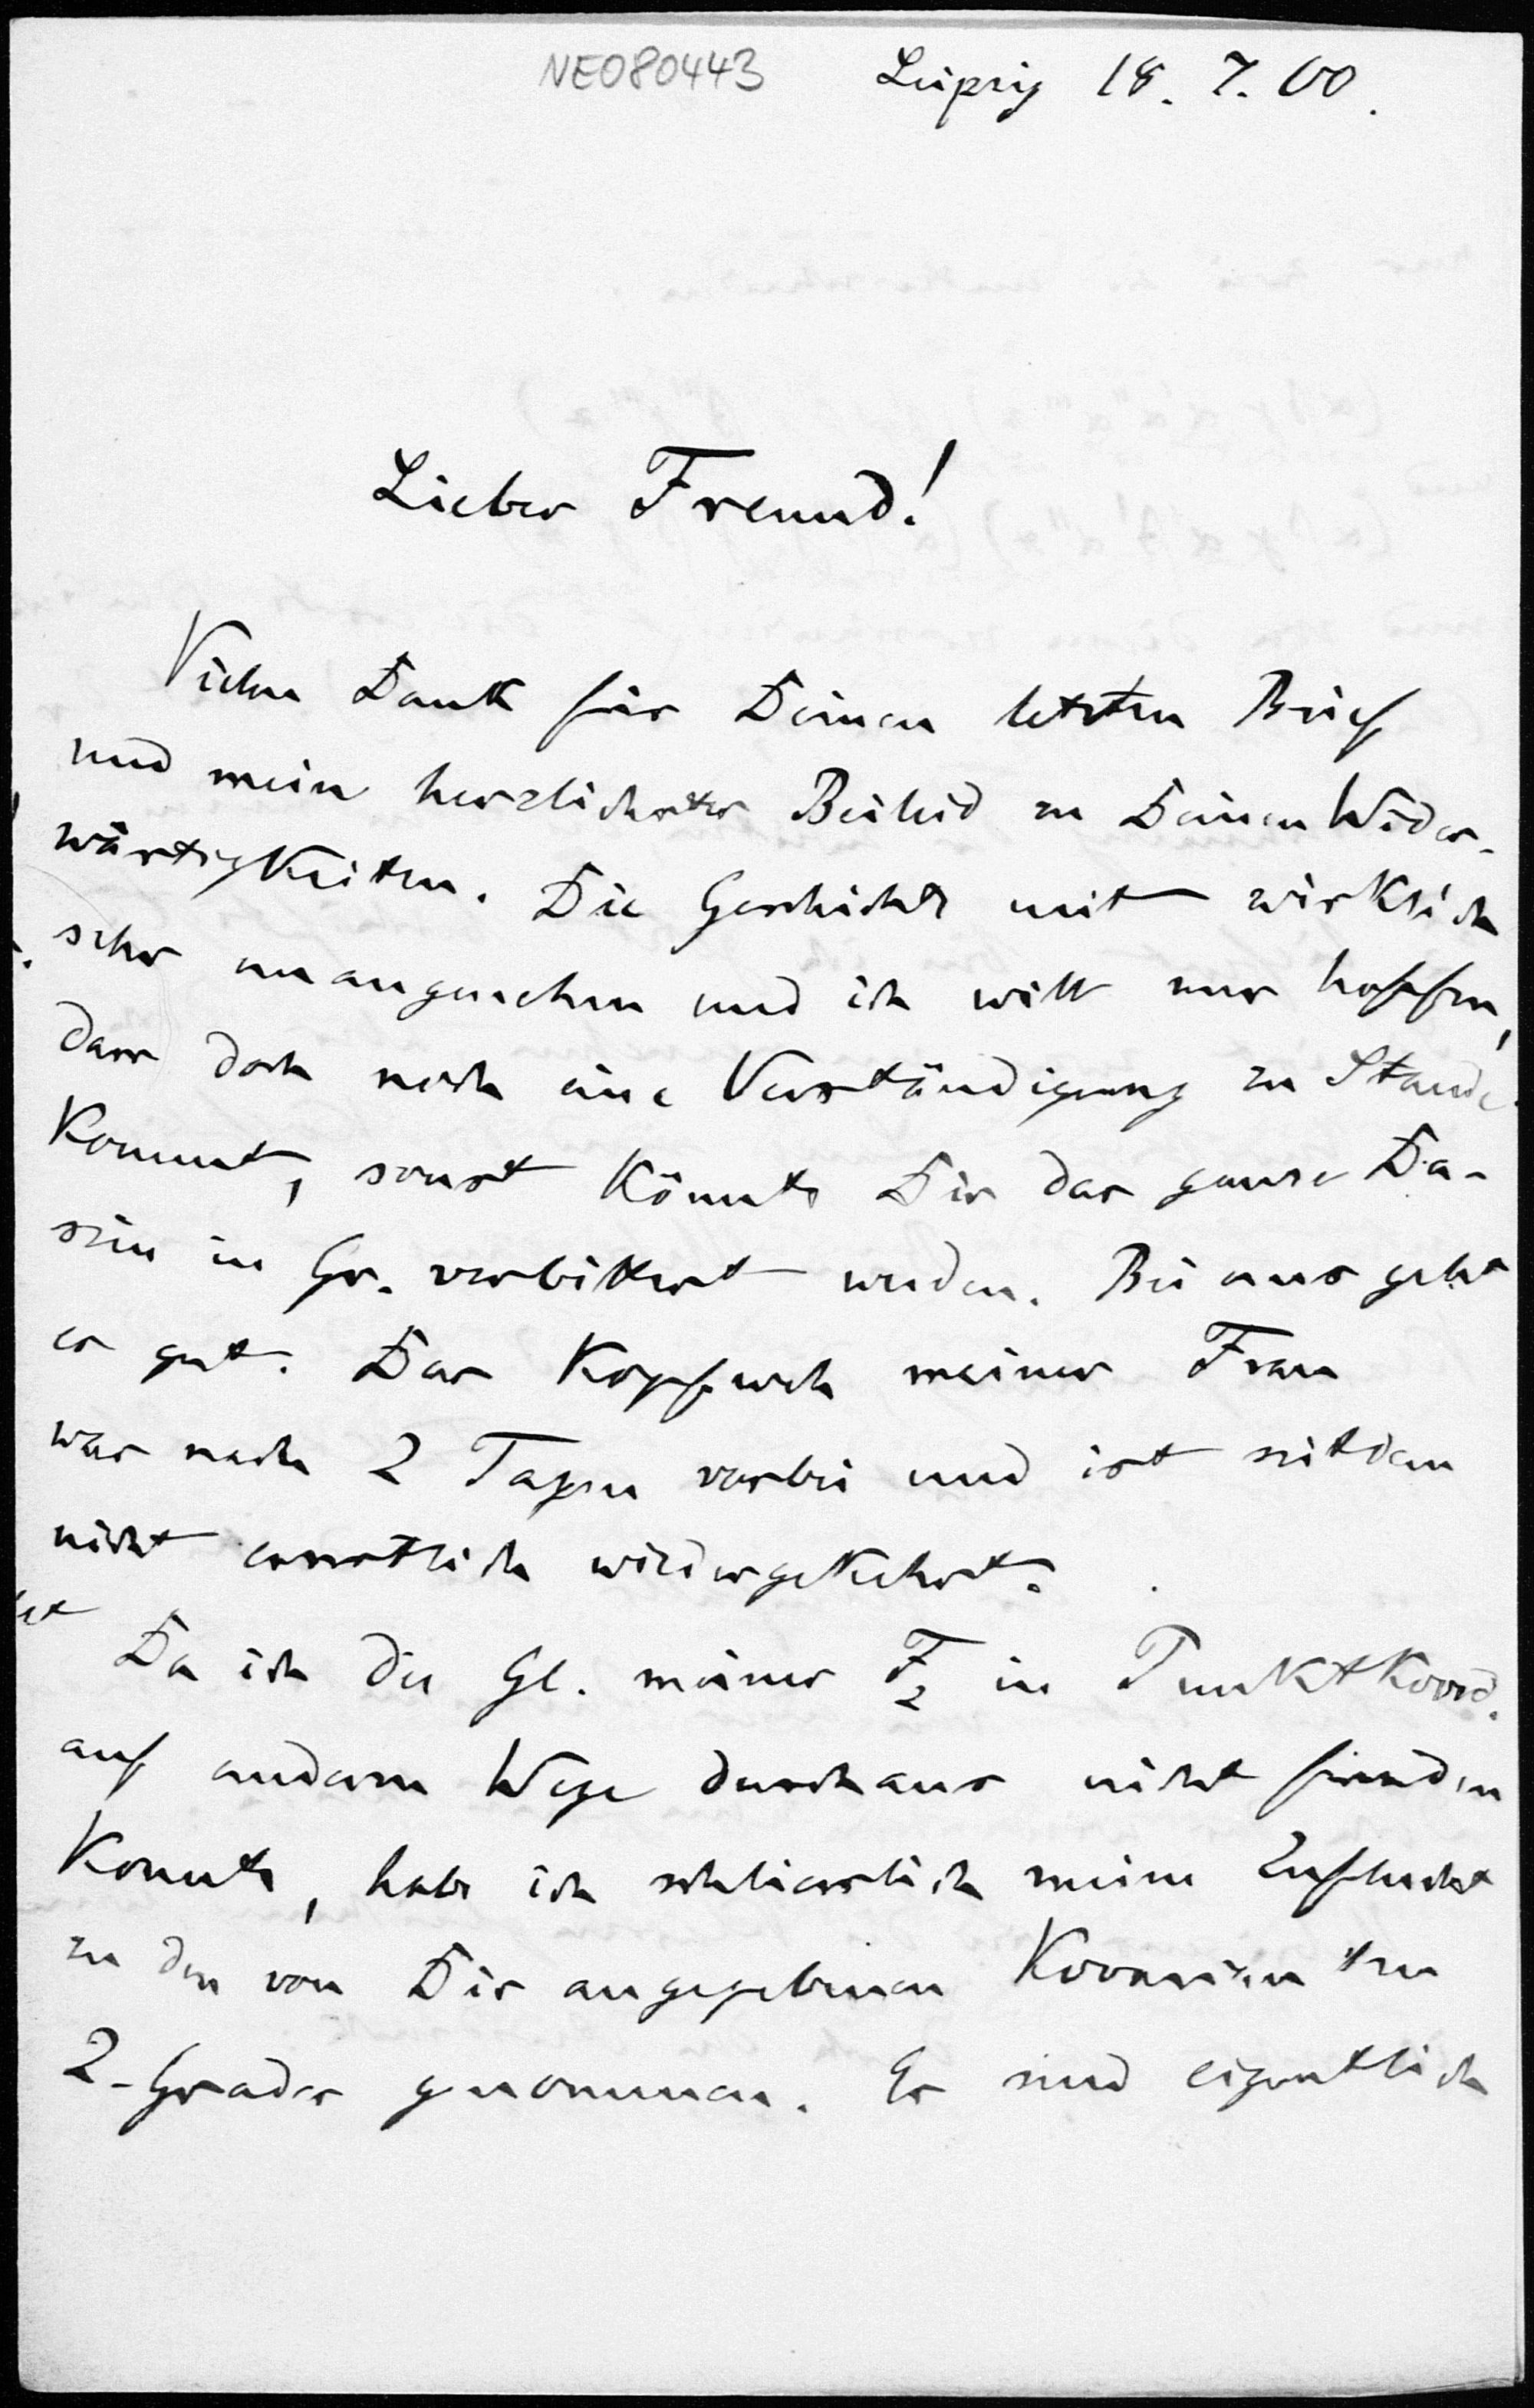 NE080443 Leipzig 18. 7. 00.
Lieber Freund!
Vielen Dank für Deinen letzten Brief
und mein herzlichstes Beileid zu Deinen Wider-
wärtigkeiten. Die Geschichte mit wirklich
sehr unangenehm und ich will nur hoffen,
dass doch noch eine Verständigung zu Stande
kommt, sonst könnte Dir das ganze Da-
sein in Gr. verbittert werden. Bei uns geht
es gut. Das Kopfweh meiner Frau
war nach 2 Tagen vorbei und ist seitdem
nicht ernstlich wiedergekehrt.
Da ich die Gl. meiner F2 in Punktkoord.
auf anderem Wege durchaus nicht finden
konnte, habe ich schliesslich meine Zuflucht
zu den von Dir angegebenen Kovarianten
2-Grades genommen. Es sind eigentlich